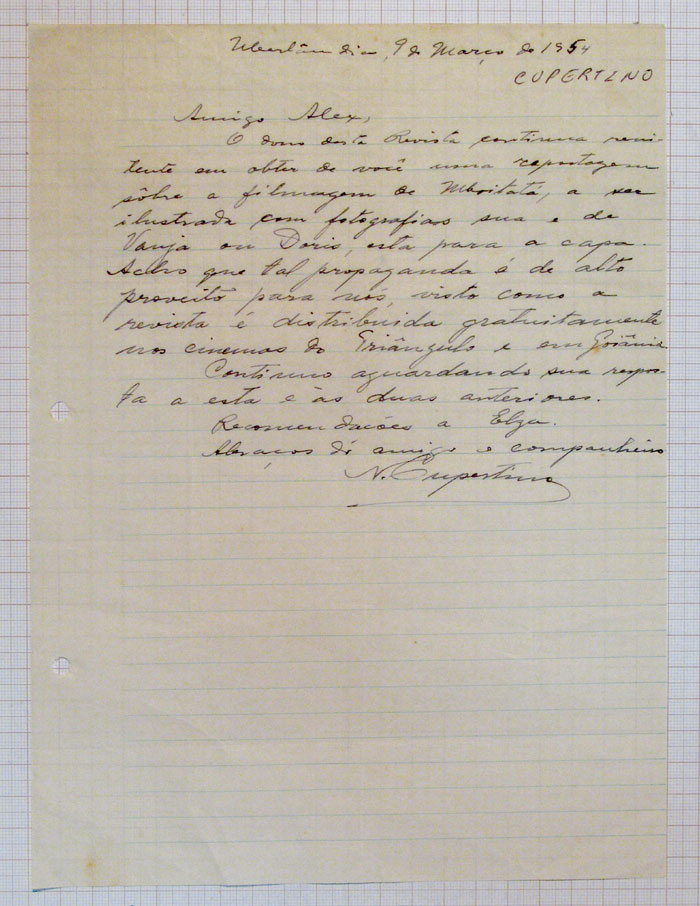 Uberlândia, 9 de Março de 1954
CUPERTINO
Amigo Alex,
O dono desta Revista continua reni-
tente em obter de você uma reportagem
sôbre a filmagem de Mboitatá, a ser
ilustrada com fotografias sua e de
Vanja ou Doris, esta para a capa.
Acho que tal propaganda é de alto
proveito para nós, visto como a
revista é distribuida gratuitamente
nos cinemas do Triângulo e em Goiânia
Continuo aguardando sua respos-
ta a esta e às duas anteriores.
Recomendações a Elza.
Abraços do amigo e companheiro
N. Cupertino